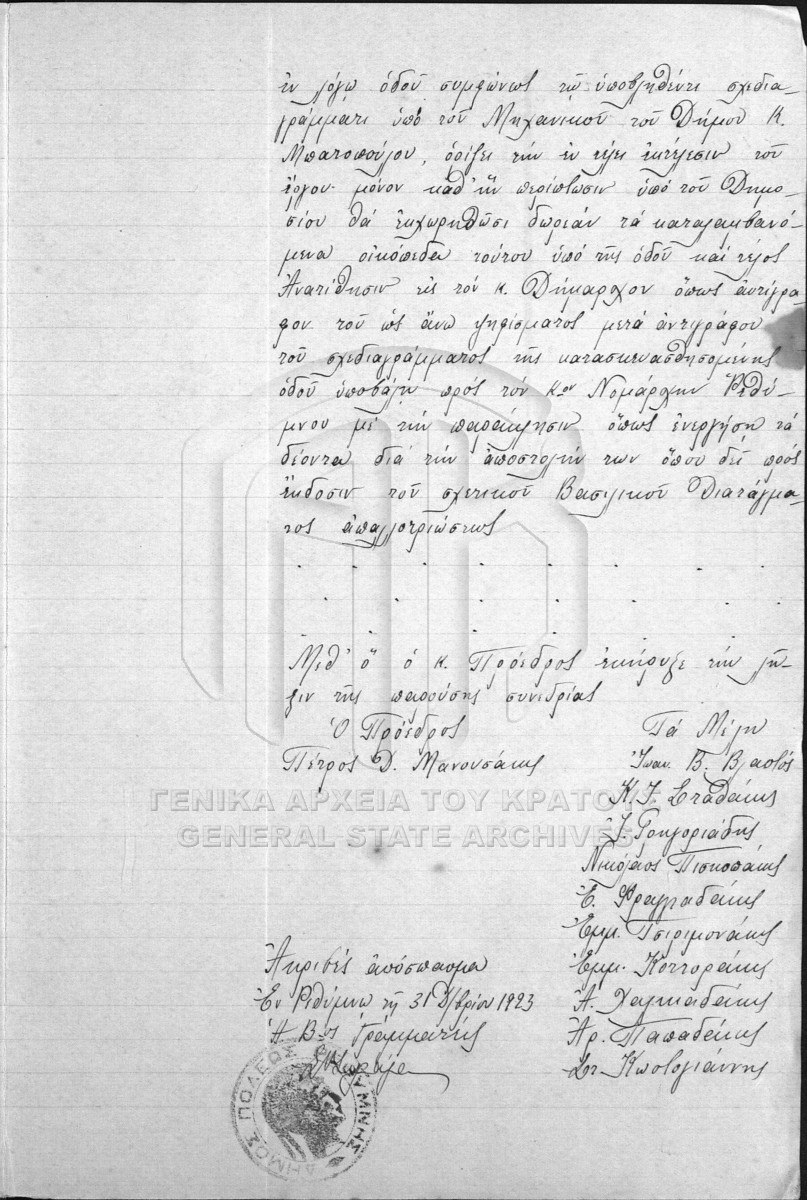 ἐν λόγῳ ὁδοῦ συμφώνως τῷ ὑποβληθέντι σχεδια-
γράμματι ὑπὸ τοῦ Μηχανικοῦ τοῦ Δήμου Κ.
Μπατοπούλου, ὁρίζει τὴν ἐν τέλει ἐκτέλεσιν τοῦ
ἔργου μόνον καθ' ἣν περίπτωσιν ὑπὸ τοῦ Δημο-
σίου θὰ ἐκχωρηθῶσι δωρεὰν τὰ καταλαμβανό-
μενα οἰκόπεδα τούτου ὑπὸ τῆς ὁδοῦ καὶ τέλος
Ἀνατίθησιν εἰς τὸν κ. Δήμαρχον ὅπως ἀντίγρα-
φον τοῦ ὡς ἄνω ψηφίσματος μετὰ ἀντιγράφου
τοῦ σχεδιαγράμματος τῆς κατασκευασθησομένης
ὁδοῦ ὑποβάλῃ πρὸς τὸν Κον Νομάρχην Ρεθύ-
μνου μὲ τὴν παράκλησιν ὅπως ἐνεργήσῃ τὰ
δέοντα διὰ τὴν ἀποστολήν των ὅπου δεῖ πρὸς
ἔκδοσιν τοῦ σχετικοῦ Βασιλικοῦ Διατάγμα-
τος ἀπαλλοτριώσεως
Μεθ' ὃ ὁ κ. Πρόεδρος ἐκήρυξε τὴν λῆ-
ξιν τῆς παρούσης συνεδρίας
Ὁ Πρόεδρος
Πέτρος Δ. Μανουσάκης
Τὰ Μέλη
Ἰωαν. Β. Βλαστός
Κ. Ι. Σταθάκης
Ι. Γρηγοριάδης
Νικόλαος Πισκοπάκης
Ε. Φραγκιαδάκης
Ἐμμ. Τσιριμονάκης
Ἐμμ. Κοττοράκης
Α. Χαλκιαδάκης
Αρ. Παπαδάκης
Στ. Κωστογιάννης
Ἀκριβὲς ἀπόσπασμα
Ἐν Ρεθύμνῳ τῇ 31 8/βρίου 1923
Ὁ Βος Γραμματεύς
ΔΗΜΟΣ ΠΟΛΕΩΣ ΡΕΘΥΜΝΗΣ
ΓΕΝΙΚΑ ΑΡΧΕΙΑ ΤΟΥ ΚΡΑΤΟΥΣ
GENERAL STATE ARCHIVES